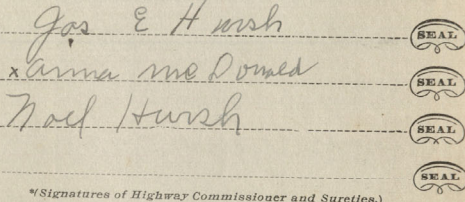 Jas E Hursh SEAL
x Anna McDonald SEAL
Noel Hursh SEAL
SEAL
*(Signatures of Highway Commissioner and Sureties.)